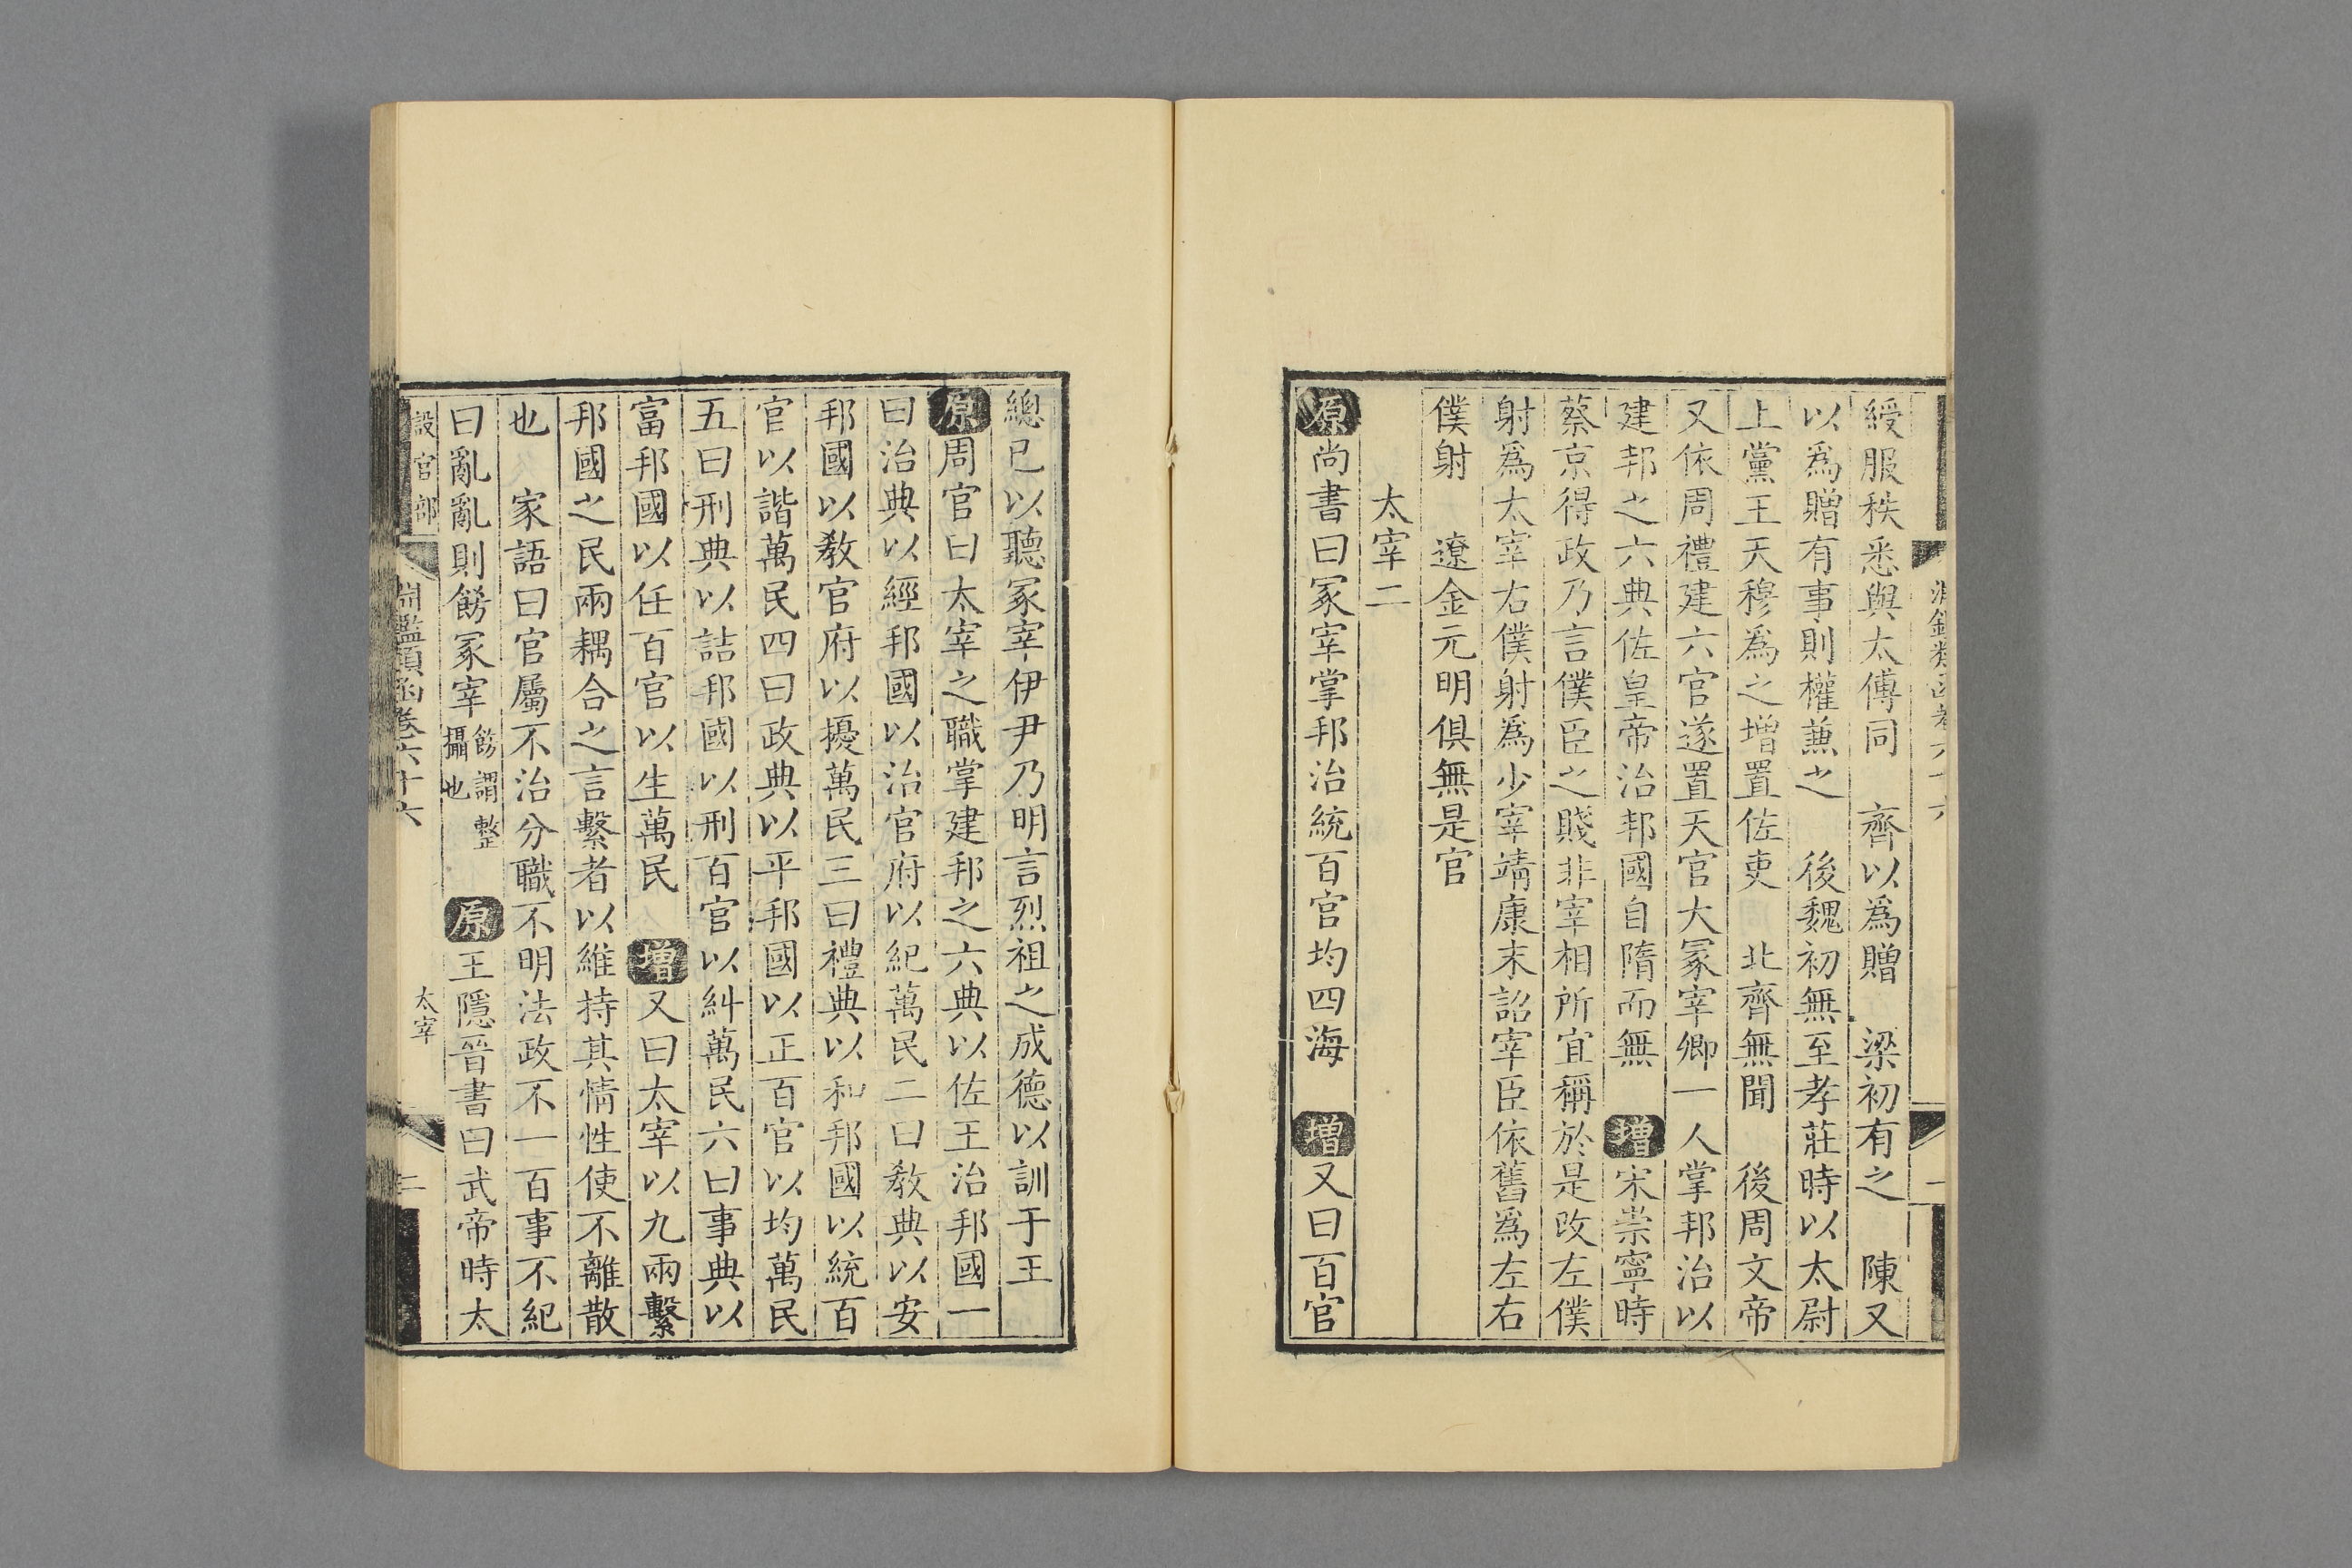 綬服秩悉與太傅同　齊以爲贈　梁初有之　陳又
以爲贈有事則權兼之　後魏初無至孝莊時以太尉
上黨王天穆爲之增置佐吏　北齊無聞　後周文帝
又依周禮建六官遂置天官大冢宰卿一人掌邦治以
建邦之六典佐皇帝治邦國自隋而無　增宋崇寧時
蔡京得政乃言僕臣之賤非宰相所宜稱於是改左僕
射爲太宰右僕射爲少宰靖康末詔宰臣依舊爲左右
僕射　遼金元明俱無是官
太宰二
原尚書曰冢宰掌邦治統百官均四海　增又曰百官
總已以聽冢宰伊尹乃明言烈祖之成德以訓于王
原周官曰太宰之職掌建邦之六典以佐王治邦國一
曰治典以經邦國以治官府以紀萬民二曰敎典以安
邦國以敎官府以擾萬民三曰禮典以和邦國以統百
官以諧萬民四曰政典以平邦國以正百官以均萬民
五曰刑典以詰邦國以刑百官以糾萬民六曰事典以
富邦國以任百官以生萬民　增又曰太宰以九兩繫
邦國之民兩耦合之言繫者以維持其情性使不離散
也　家語曰官屬不治分職不明法政不一百事不紀
曰亂亂則飭冢宰飭謂整攝也　原王隱晉書曰武帝時太
設官部
淵鑑類函卷六十六
太宰
二